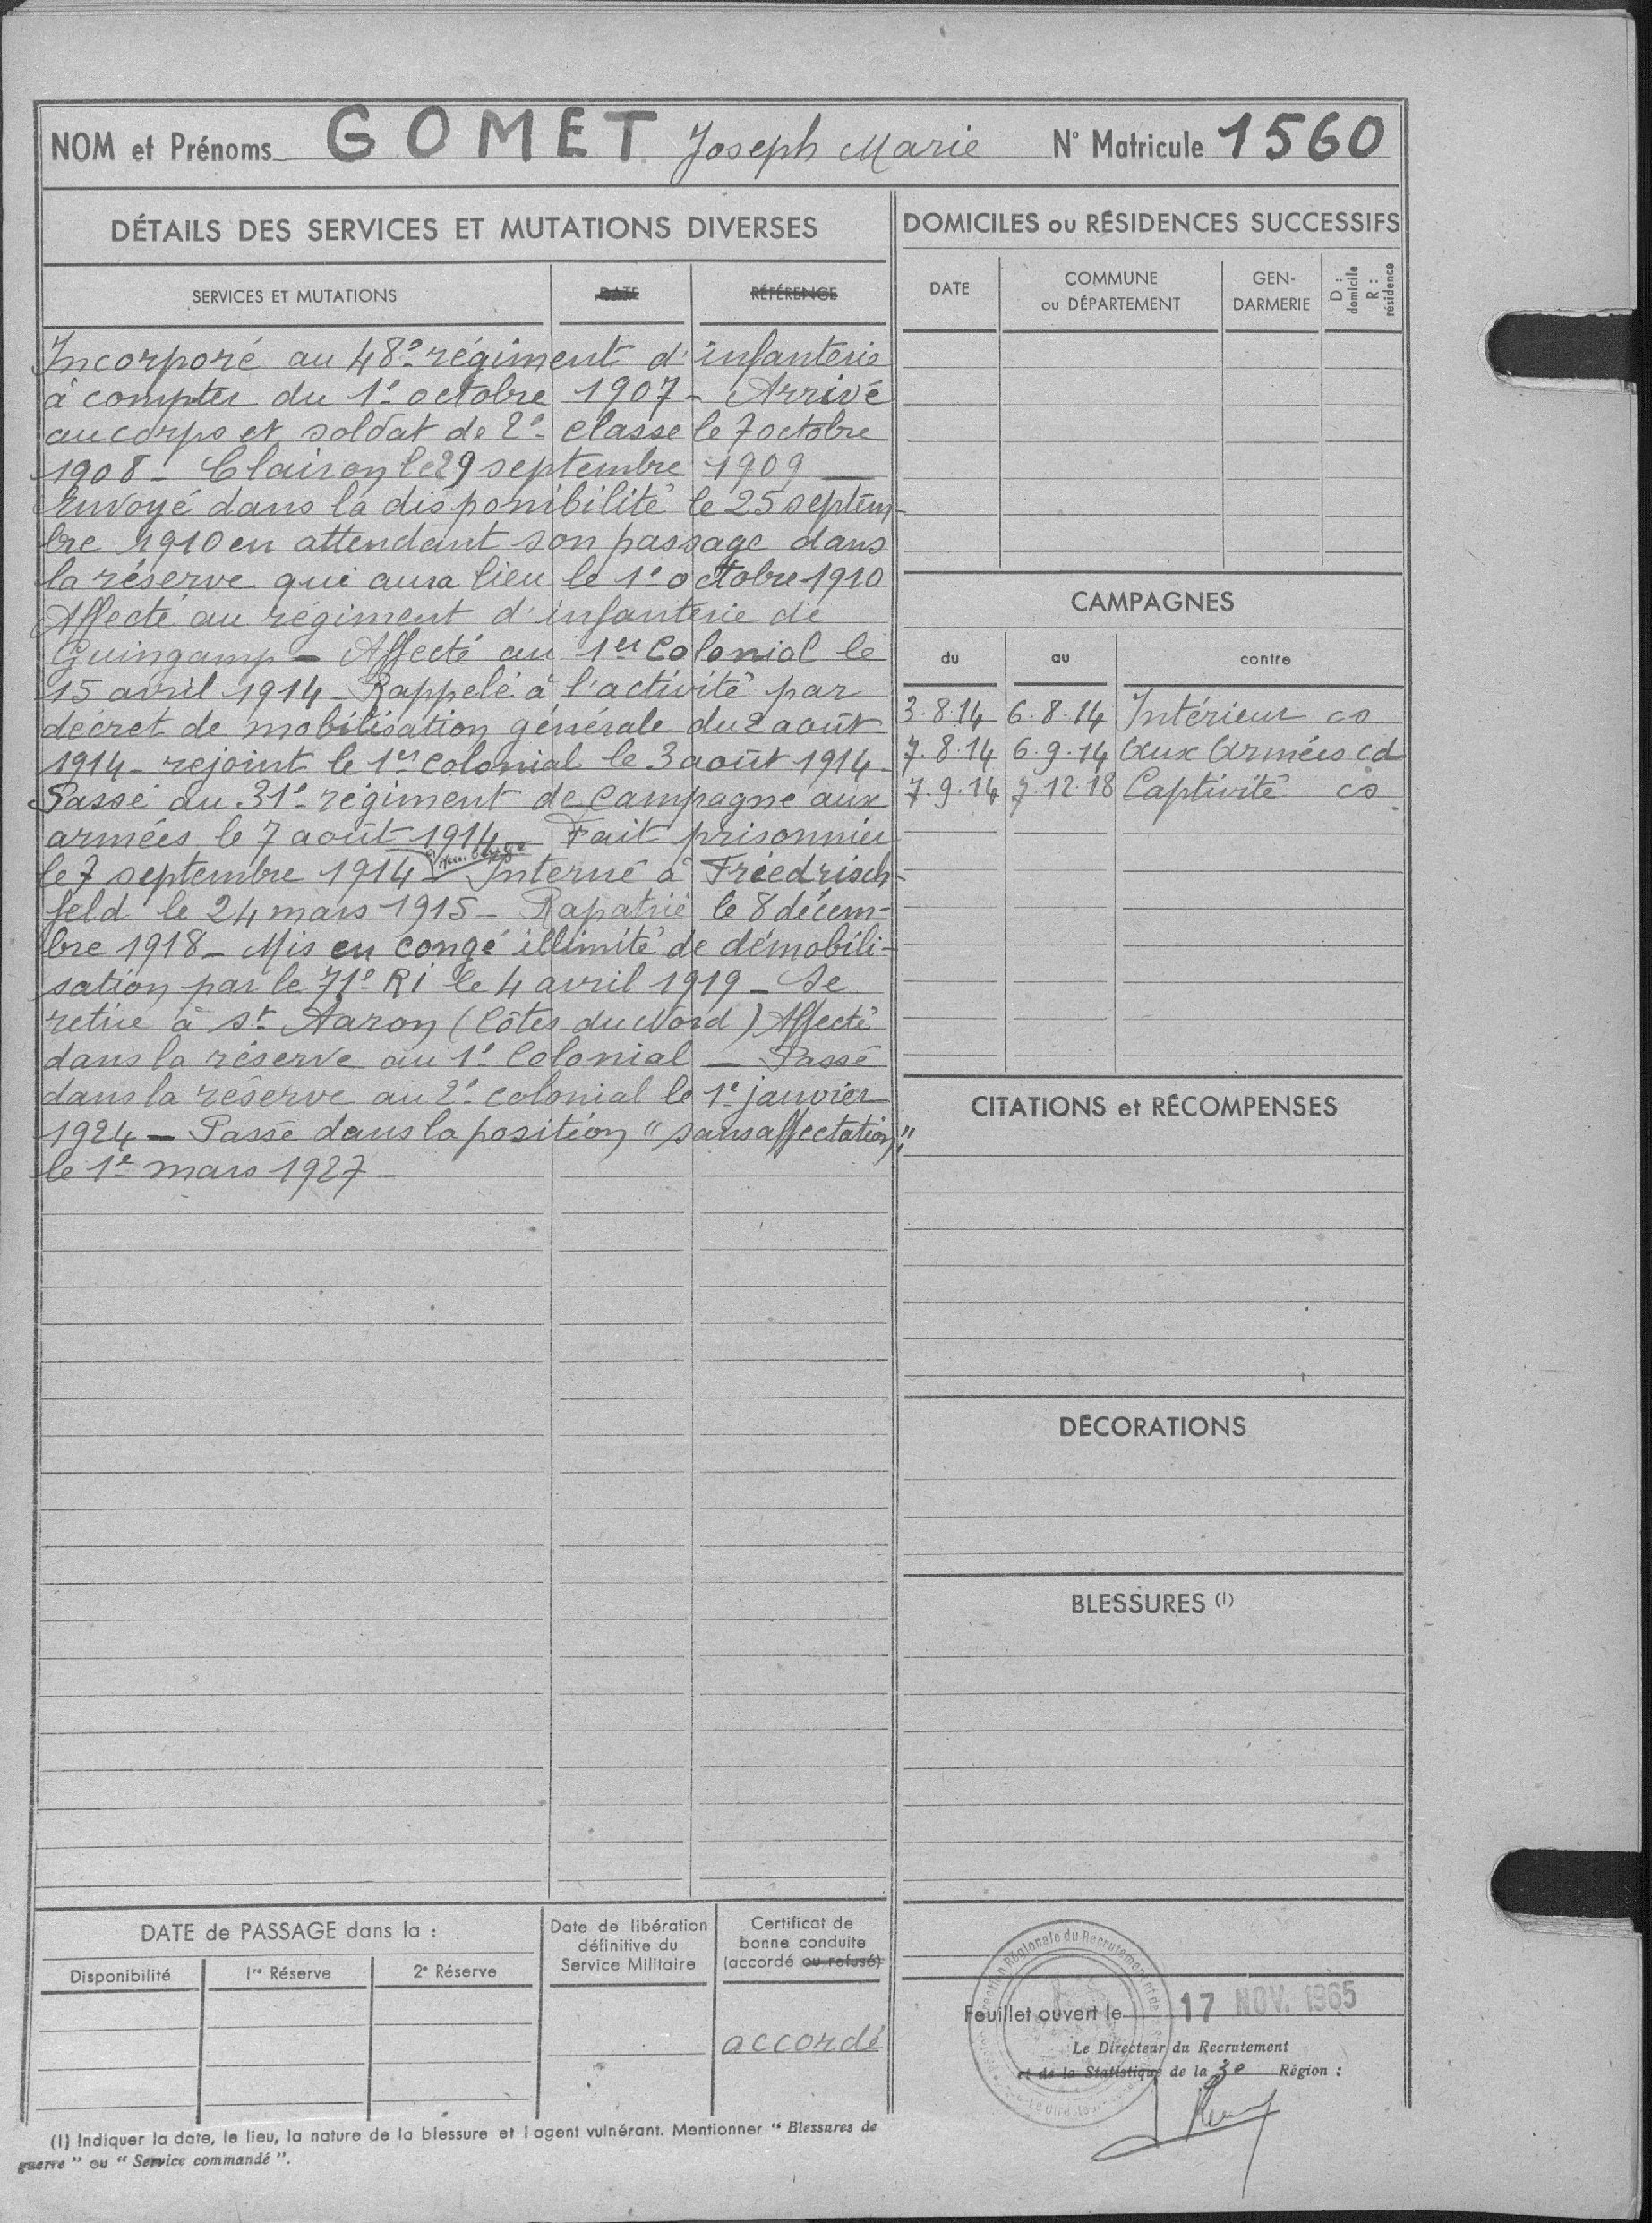 NOM et Prénoms GOMET Joseph Marie N° Matricule 1560
DÉTAILS DES SERVICES ET MUTATIONS DIVERSES
SERVICES ET MUTATIONS DATE RÉFÉRENCE
Incorporé au 48e régiment d'infanterie
à compter du 1e octobre 1907 - Arrivé
au corps et soldat de 2e classe le 7 octobre
1908 - Clairon le 29 septembre 1909
Envoyé dans la disponibilité le 25 septem-
bre 1910 en attendant son passage dans
la réserve qui aura lieu le 1e octobre 1910
Affecté au régiment d'infanterie de
Guingamp - Affecté au 1er Colonial le
15 avril 1914 - Rappelé à l'activité par
décret de mobilisation générale du 2 août
1914 - rejoint le 1er colonial le 3 août 1914 -
Passé au 31e régiment de campagne aux
armées le 7 août 1914 - Fait prisonnier
le 7 septembre 1914 - Interné à Friedrisch-
feld le 24 mars 1915 - Rapatrié le 8 décem-
bre 1918 - Mis en congé illimité de démobili-
sation par le 71e RI le 4 avril 1919 - Se
retire à St Aaron (Côtes du Nord) Affecté
dans la réserve au 1e Colonial - Passé
dans la réserve au 2e colonial le 1e janvier
1924 - Passé dans la position "sans affectation"
le 1e mars 1927 -
DATE de PASSAGE dans la :
Disponibilité 1re Réserve 2e Réserve
Date de libération
définitive du
Service Militaire
Certificat de
bonne conduite
(accordé ou refusé)
accordé
(1) Indiquer la date, le lieu, la nature de la blessure et l agent vulnérant. Mentionner " Blessures de
guerre " ou " Service commandé ".
DOMICILES ou RÉSIDENCES SUCCESSIFS
DATE
COMMUNE
ou DÉPARTEMENT
GEN-
DARMERIE
D :
domicile
R :
résidence
CAMPAGNES
du au contre
3.8.14 6.8.14 Intérieur cs
7.8.14 6.9.14 Aux Armées cd
7.9.14 7.12.18 Captivité cs
CITATIONS et RÉCOMPENSES
DÉCORATIONS
BLESSURES (1)
Feuillet ouvert le 17 NOV. 1965
Le Directeur du Recrutement
et de la Statistique de la 3e Région :